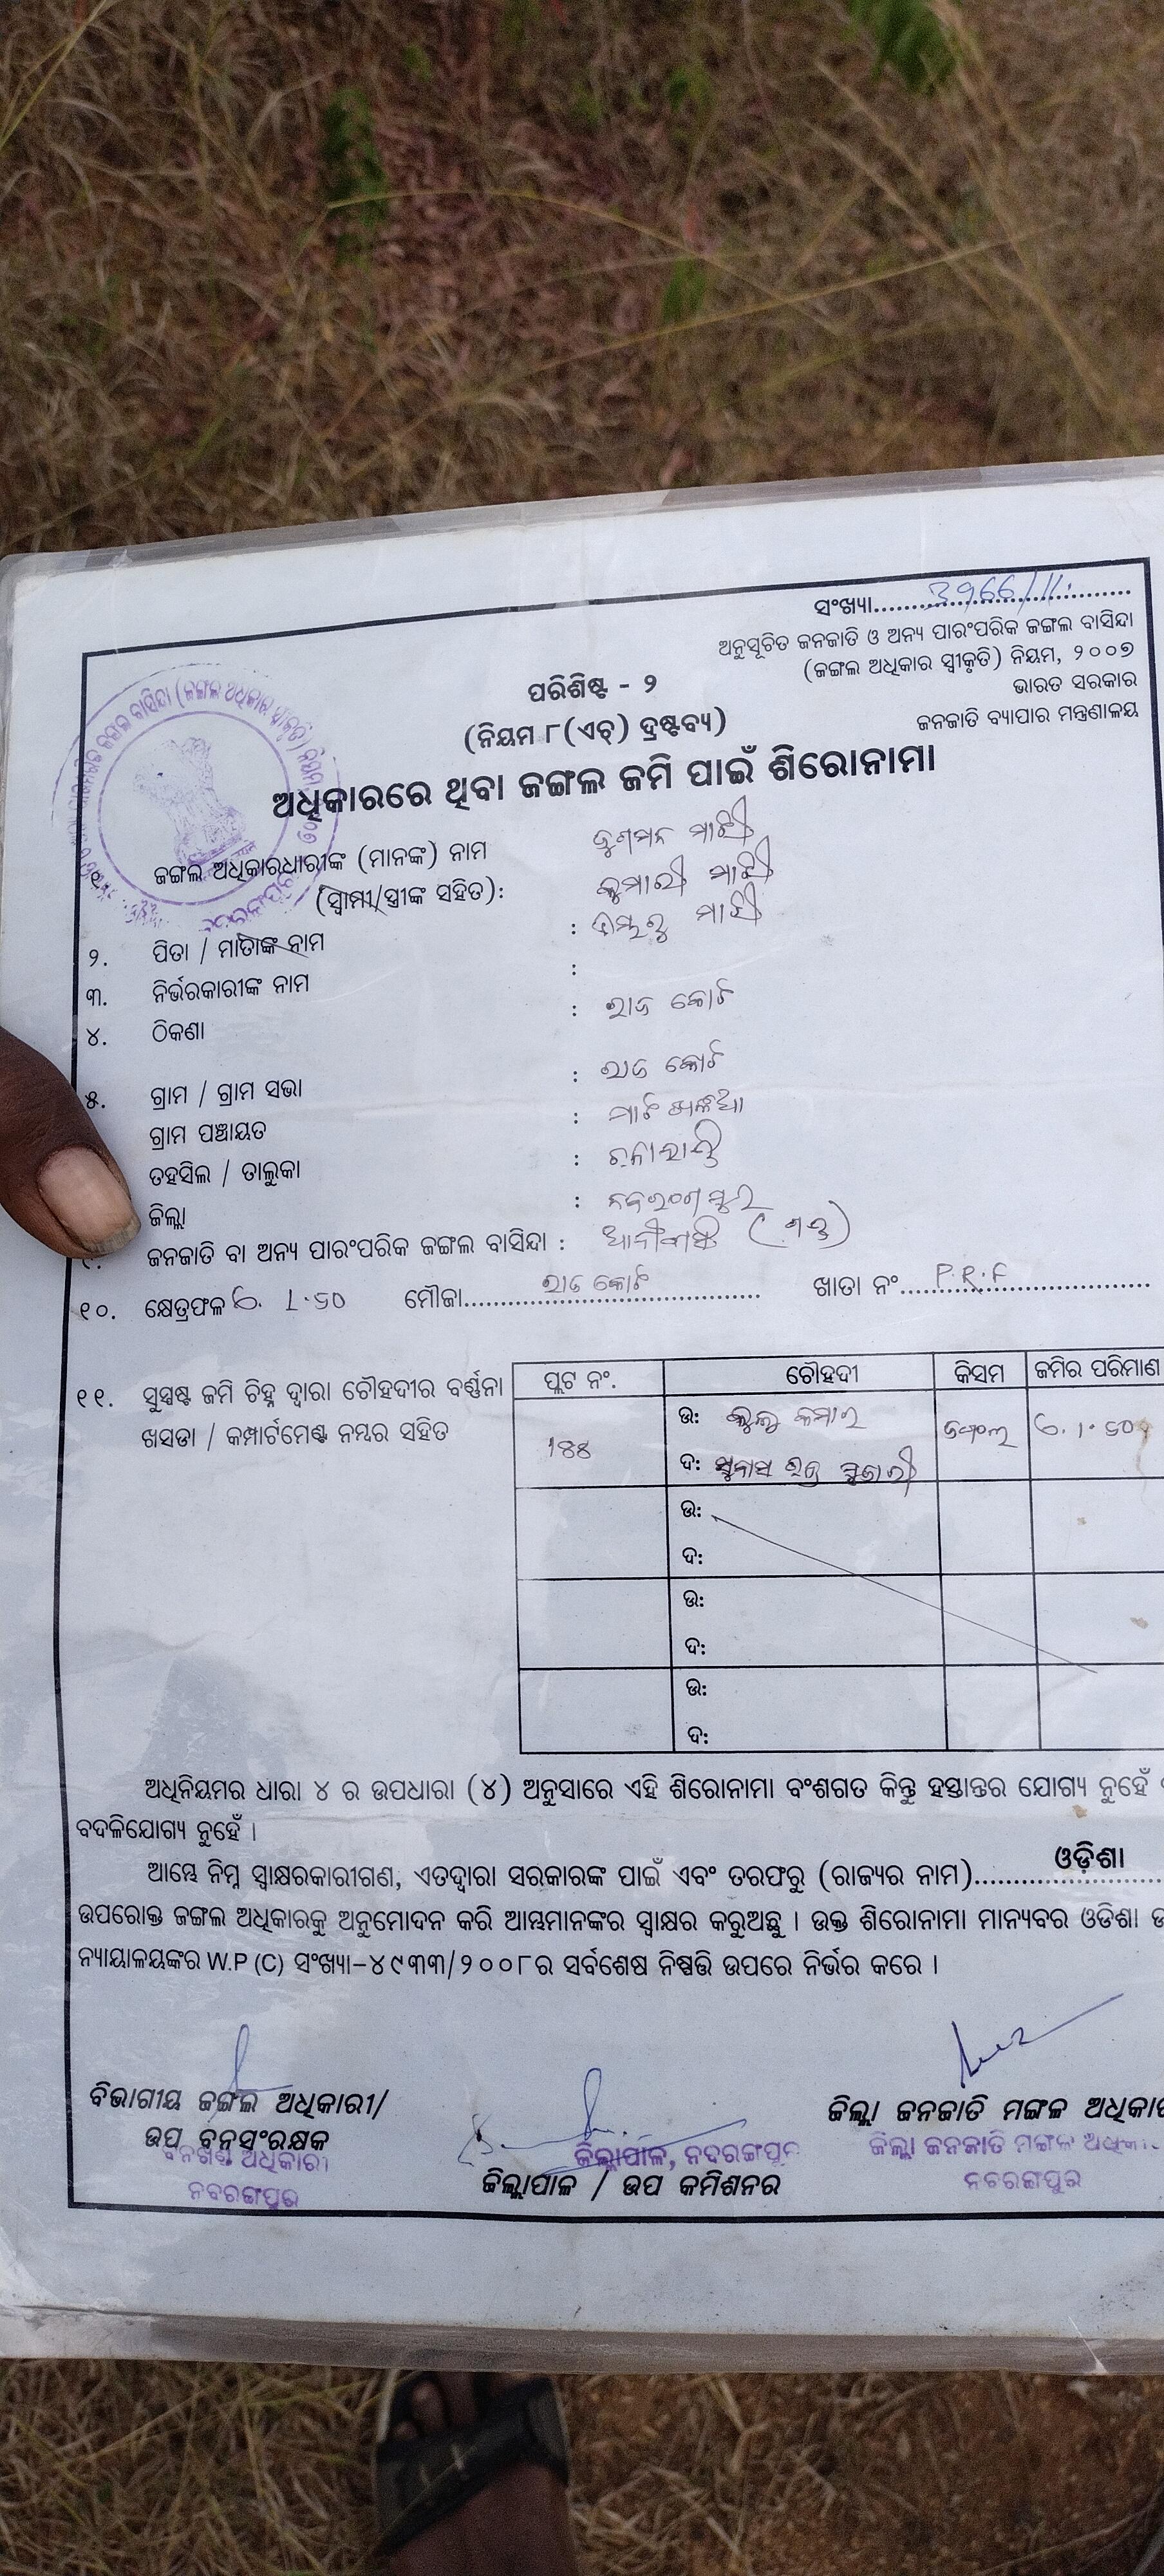 ସଂଖ୍ୟା..........3966/11..........
ଅନୁସୂଚିତ ଜନଜାତି ଓ ଅନ୍ୟ ପାରଂପରିକ ଜଙ୍ଗଲ ବାସିନ୍ଦା
(ଜଙ୍ଗଲ ଅଧିକାର ସ୍ୱୀକୃତି) ନିୟମ, ୨୦୦୭
ଭାରତ ସରକାର
ଜନଜାତି ବ୍ୟାପାର ମନ୍ତ୍ରଣାଳୟ
ପରିଶିଷ୍ଟ - ୨
(ନିୟମ ୮(ଏଚ୍) ଦ୍ରଷ୍ଟବ୍ୟ)
ଅଧିକାରରେ ଥିବା ଜଙ୍ଗଲ ଜମି ପାଇଁ ଶିରୋନାମା
ଜଙ୍ଗଲ ଅଧିକାରଧାରୀଙ୍କ (ମାନଙ୍କ) ନାମ ମାଝୀ
(ସ୍ୱାମୀ/ସ୍ତ୍ରୀଙ୍କ ସହିତ): କୁମାରୀ ମାଝୀ
୨. ପିତା / ମାତାଙ୍କ ନାମ : ଦାମ୍ଭରୁ ମାଝୀ
୩. ନିର୍ଭରକାରୀଙ୍କ ନାମ :
୪. ଠିକଣା : ରାଜ କୋଟ
୫. ଗ୍ରାମ / ଗ୍ରାମ ସଭା : ରାଜ କୋଟ
ଗ୍ରାମ ପଞ୍ଚାୟତ :
ତହସିଲ / ତାଲୁକା :
ଜିଲ୍ଲା : ନବରଂଗପୁର
ଜନଜାତି ବା ଅନ୍ୟ ପାରଂପରିକ ଜଙ୍ଗଲ ବାସିନ୍ଦା : ଆଦୀବାସୀ (ଗଣ୍ଡ)
୧୦. କ୍ଷେତ୍ରଫଳ ଏ. 1.50 ମୌଜା..........ରାଜ କୋଟ.......... ଖାତା ନଂ..........P.R.F..........
୧୧. ସୁସ୍ପଷ୍ଟ ଜମି ଚିହ୍ନ ଦ୍ୱାରା ଚୌହଦୀର ବର୍ଣ୍ଣନା
ଖସଡା / କମ୍ପାର୍ଟମେଣ୍ଟ ନମ୍ବର ସହିତ
ପ୍ଲଟ ନଂ. ଚୌହଦୀ କିସମ ଜମିର ପରିମାଣ
ଉ: କମାର ଜଙ୍ଗଲ ଏ. 1.50
ଦ: ପୁଜାରୀ
ଉ:
ଦ:
ଉ:
ଦ:
ଉ:
ଦ:
ଅଧିନିୟମର ଧାରା ୪ ର ଉପଧାରା (୪) ଅନୁସାରେ ଏହି ଶିରୋନାମା ବଂଶଗତ କିନ୍ତୁ ହସ୍ତାନ୍ତର ଯୋଗ୍ୟ ନୁହେଁ
ବଦଳିଯୋଗ୍ୟ ନୁହେଁ ।
ଆମ୍ଭେ ନିମ୍ନ ସ୍ୱାକ୍ଷରକାରୀଗଣ, ଏତଦ୍ୱାରା ସରକାରଙ୍କ ପାଇଁ ଏବଂ ତରଫରୁ (ରାଜ୍ୟର ନାମ)..........ଓଡ଼ିଶା..........
ଉପରୋକ୍ତ ଜଙ୍ଗଲ ଅଧିକାରକୁ ଅନୁମୋଦନ କରି ଆମ୍ଭମାନଙ୍କର ସ୍ୱାକ୍ଷର କରୁଅଛୁ । ଉକ୍ତ ଶିରୋନାମା ମାନ୍ୟବର ଓଡିଶା
ନ୍ୟାୟାଳୟଙ୍କର W.P (C) ସଂଖ୍ୟା-୪୯୩୩/୨୦୦୮ର ସର୍ବଶେଷ ନିଷ୍ପତ୍ତି ଉପରେ ନିର୍ଭର କରେ ।
ବିଭାଗୀୟ ଜଙ୍ଗଲ ଅଧିକାରୀ/
ଉପ ବନସଂରକ୍ଷକ
ବନଖଣ୍ଡ ଅଧିକାରୀ
ନବରଙ୍ଗପୁର
ଜିଲ୍ଲାପାଳ, ନବରଙ୍ଗପୁର
ଜିଲ୍ଲାପାଳ / ଉପ କମିଶନର
ଜିଲ୍ଲା ଜନଜାତି ମଙ୍ଗଳ
ଜିଲ୍ଲା ଜନଜାତି ମଙ୍ଗଳ
ନବରଙ୍ଗପୁର